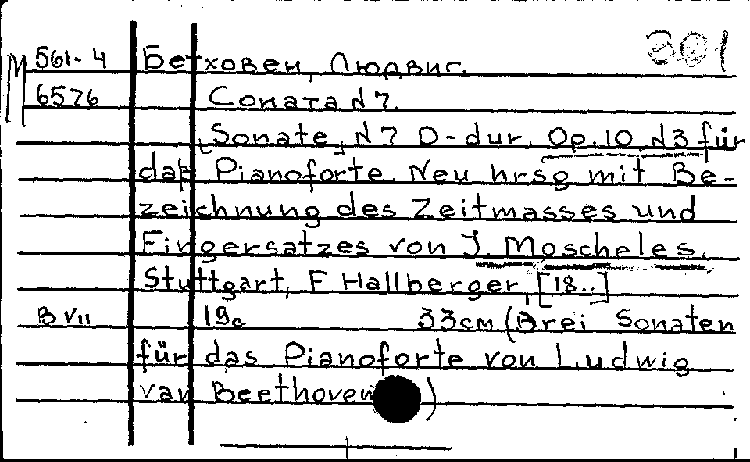 301
М 561-4 Бетховен, Людвиг.
6576 Соната №7.
[Sonate] N 7 D-dur. Op. 10 N3 für
das Pianoforte. Neu hrsg mit Be-
zeichnung des Zeitmasses und
Fingersatzes von J. Moscheles.
Stuttgart, F Hallberger, [18..]
B VII 19с 33см (Drei Sonaten
für das Pianoforte von Ludwig
van Beethoven)